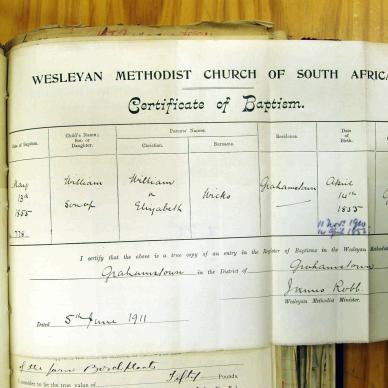 WESLEYAN METHODIST CHURCH OF SOUTH AFRICA
Certificate of Baptism.
Date of Baptism.
Child's Name;
Son or
Daughter.
Parents' Names.
Christian.
Surname.
Residence.
Date
of
Birth.
May
13th
1855
778
William
Son of
William
&
Elizabeth
Wicks
Grahamstown
April
14th
1855
I certify that the above is a true copy of an entry in the Register of Baptisms in the Wesleyan Methodist
Grahamstown in the District of Grahamstown
James Robb
Wesleyan Methodist Minister.
Dated 5th June 1911
of the farm
Fifty Pounds,
I consider to be the true value of